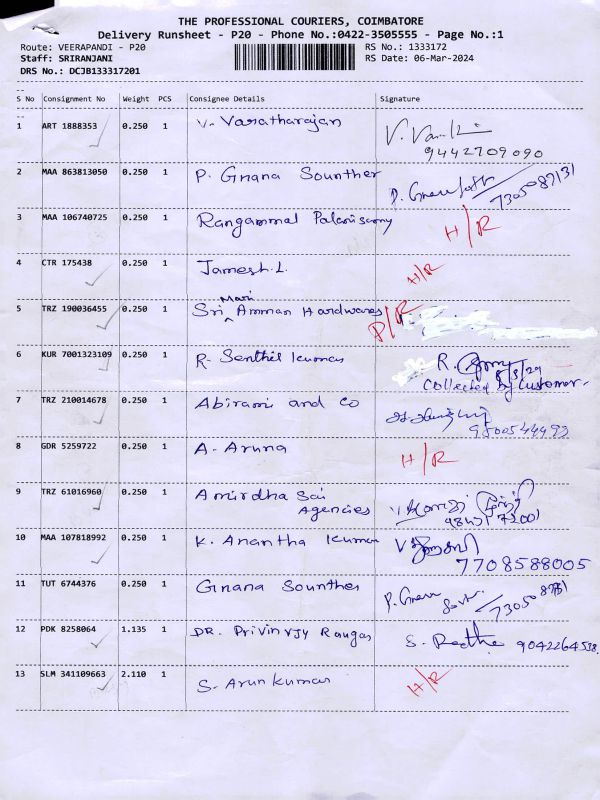 THE PROFESSIONAL COURIERS, COIMBATORE
Delivery Runsheet - P20 - Phone No.:0422-3505555 - Page No.:1
Route: VEERAPANDI - P20 RS No.: 1333172
Staff: SRIRANJANI RS Date: 06-Mar-2024
DRS No.: DCJB133317201
S No Consignment No Weight PCS Consignee Details Signature
1 ART 1888353 0.250 1 V. Varatharajan
9442709090
2 MAA 863813050 0.250 1 P. Gnana Sounther 7305087131
3 MAA 106740725 0.250 1 Rangammal Palanisamy H/R
4 CTR 175438 0.250 1 Jamesh.L. H/R
5 TRZ 190036455 0.250 1 Sri Mari Amman Hardwares P/R
6 KUR 7001323109 0.250 1 R. Senthil Kumar R.
Collected by Customer.
7 TRZ 210014678 0.250 1 Abirami and Co
8 GDR 5259722 0.250 1 A. Aruna H/R
9 TRZ 61016960 0.250 1 Amirdha Sai
Agencies
10 MAA 107818992 0.250 1 K. Anantha Kumar
7708588005
11 TUT 6744376 0.250 1 Gnana Sounther
12 PDK 8258064 1.135 1 DR. 9042264538
13 SLM 341109663 2.110 1 S. Arun Kumar H/R